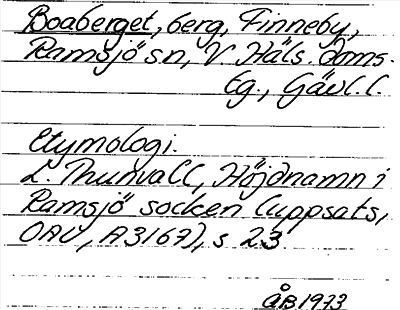 Boaberget, berg, Finneby,
Ramsjö sn, V Häls. doms.
tg., Gävl. l.
Etymologi.
L. Thunvall, Höjdnamn i
Ramsjö socken (uppsats,
OAU, A3167), s 23.
ÅB 1973